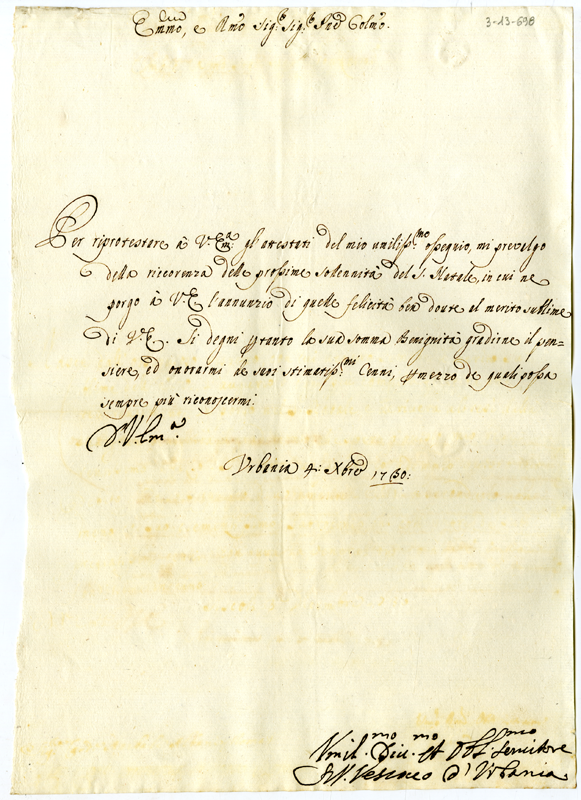 Emmo, e Rmo Sigr: Sigr: Pred Colmo.
3-13-698
Per riprotestare à V. Ema: gl'attestati del mio umilissmo: ossequio, mi prevalgo
della ricorenza delle prossime solennità del S. Natale, in cui ne
porgo à V. E. l'annunzio di quelle felicità ben doute al merito sublime
di V. E. Si degni ptanto la sua somma Benignità gradirne il pen-
siere, ed onorarmi de suoi stimatissmi: Cenni, p mezzo de quali possa
sempre più riconoscermi:
D. V. Ema.
Urbania 4: Xbre 1730:
Umilmo: Divmo: et Obbmo: Servitore
Vescovo d'Urbania